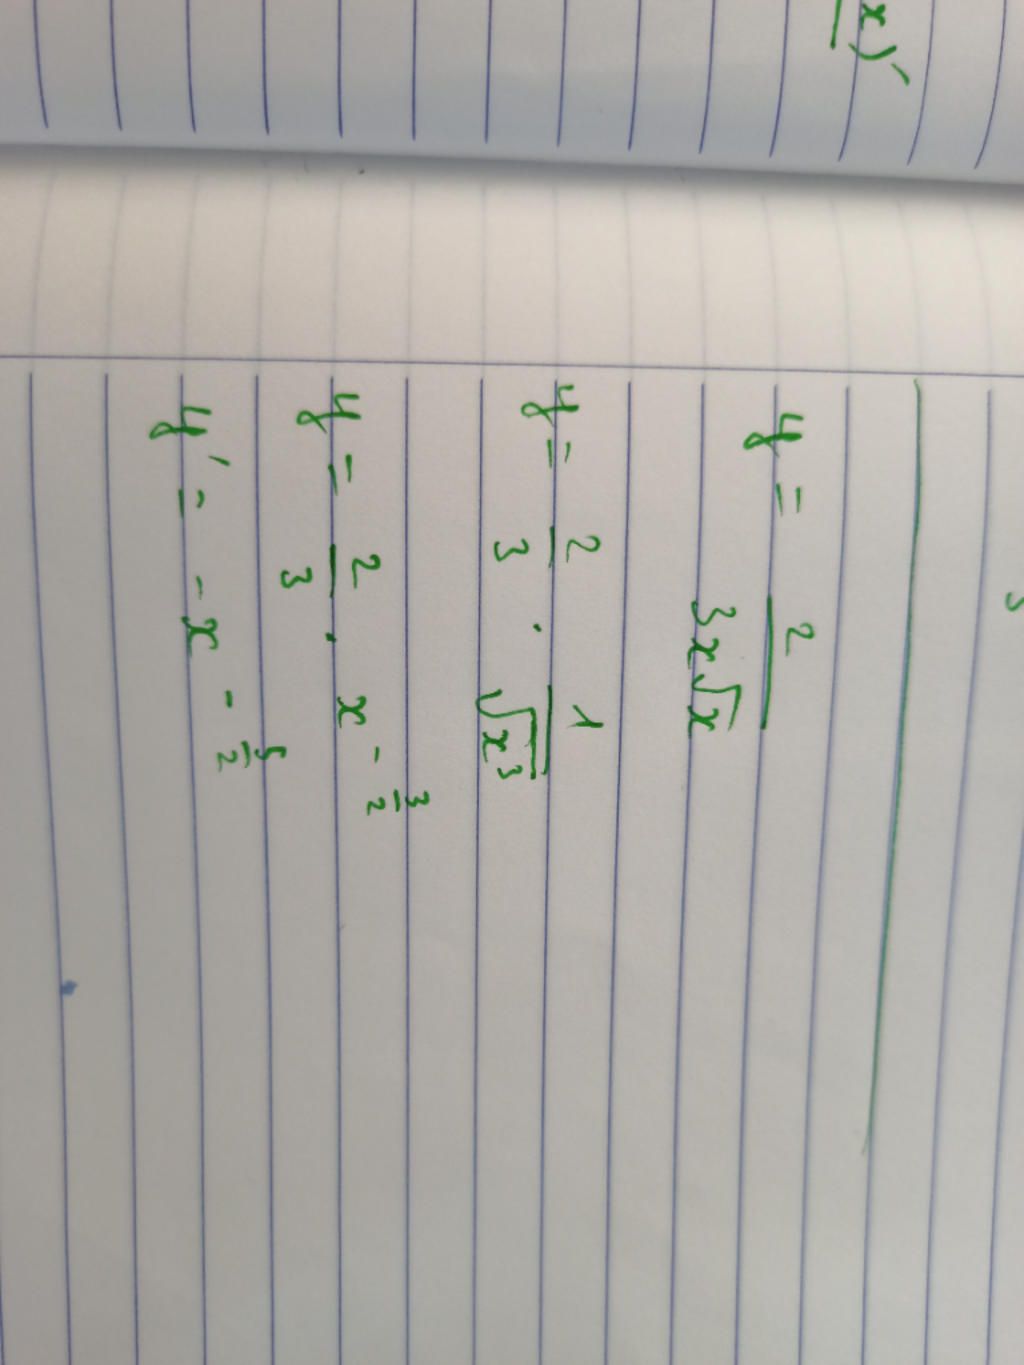 x)′
3
y = 2/(3x√x)
y = 2/3 · 1/√(x³)
y = 2/3 · x^(-3/2)
y′ = -x^(-5/2)